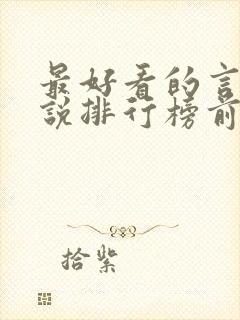 最好看的言
说排行榜前
拾紫